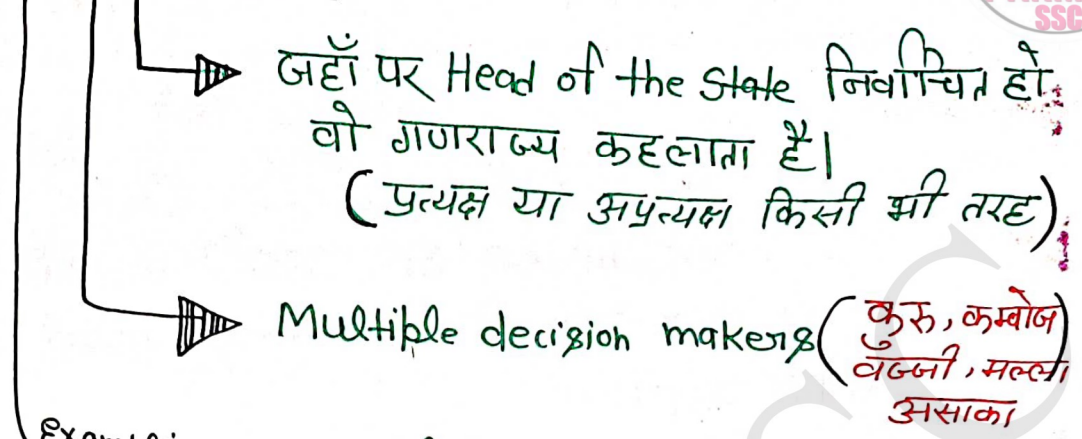 SSC
जहाँ पर Head of the State निर्वाचित हो
वो गणराज्य कहलाता है।
(प्रत्यक्ष या अप्रत्यक्ष किसी भी तरह)
Multiple decision makers (कुरु, कम्बोज
वज्जी, मल्ला
असाका)